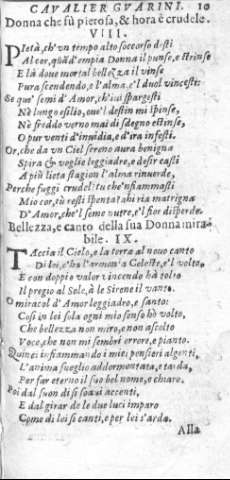 CAVALIER GVARINI. 10
Donna che fù pietosa, & hora è crudele.
VIII.
Pietà, ch'vn tempo alto soccorso desti
Al cor, quãd'empia Donna il punse, e strinse
E là doue mortal bellezza il vinse
Pura scendendo, e l'alma, e'l duol vincesti:
Se que' semi d'Amor, ch'iui spargesti
Nè lungo esilio, oue'l destin mi spinse,
Nè freddo verno mai di sdegno estinse,
O pur venti d'inuidia, ed'ira infesti.
Or, che da vn Ciel sereno aura benigna
Spira & voglie leggiadre, e desir casti
A più lieta stagion l'alma rinuerde,
Perche fuggi crudel: tu che'nfiammasti
Mio cor, tù resti spenta? ahi ria matrigna
D'Amor, che'l seme nutre, e'l fior disperde.
Bellezza, e canto della sua Donna mira-
bile. IX.
Taccia il Cielo, e la terra al nouo canto
Di lei, c'ha l'armonia Celeste, e'l volto,
E con doppio valor vincendo hà tolto
Il pregio al Sole, à le Sirene il vanto.
O miracol d'Amor leggiadro, e santo:
Così in lei sola ogni mio senso hò volto,
Che bellezza non miro, e non ascolto
Voce, che non mi sembri errore, e pianto.
Quinci infiammando i miei pensieri algenti,
L'anima sueglio addormentata, e tarda,
Per far eterno il suo bel nome, e chiaro.
Poi dal suon di sì soaui accenti,
E dal girar de le due luci imparo
Come di lei si canti, e per lei s'arda.
Alla